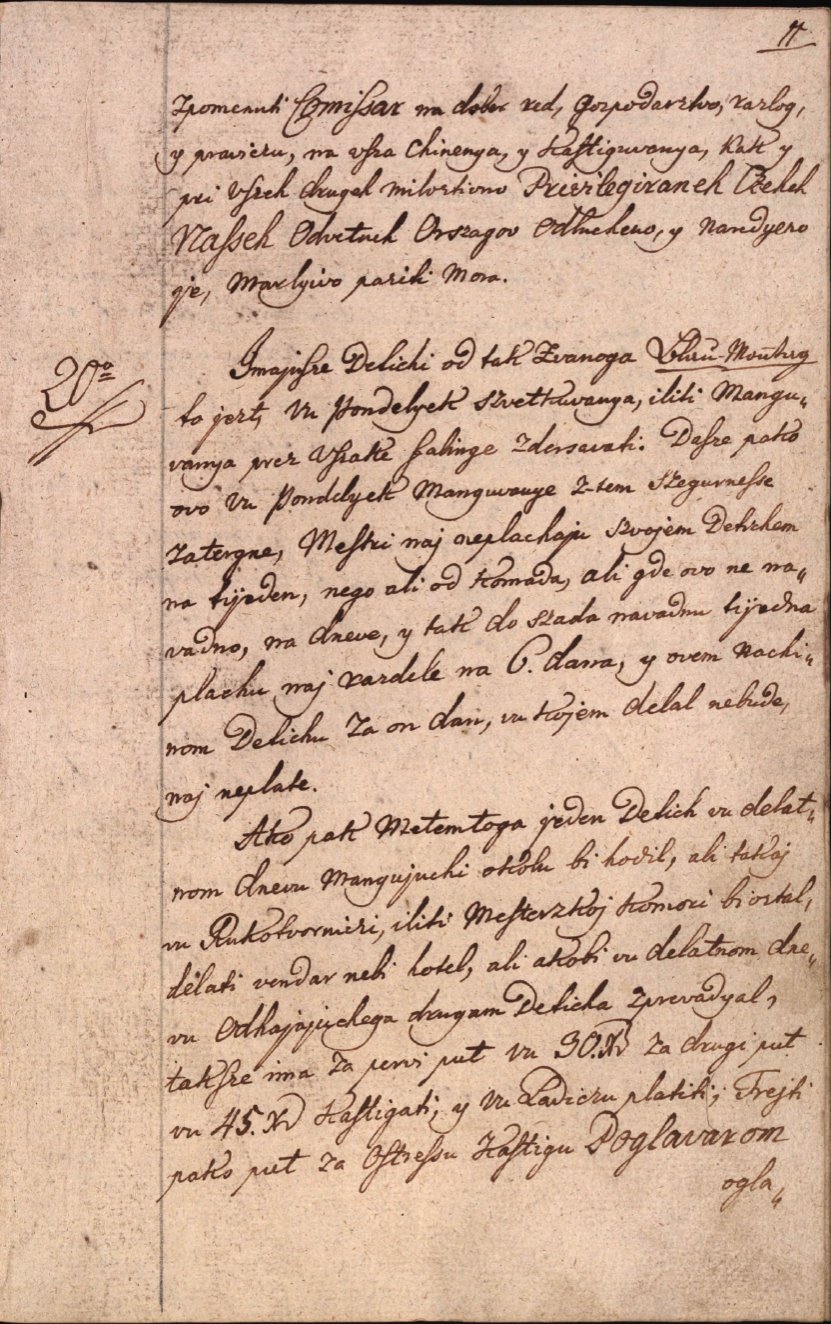 11
Zpomenuti Comissar na dober red, Gozpodarztvo, razlog,
y praviczu, na vsza Chinenya, y Kastiguvanya, kak y
pri vszeh drugeh milostivno Privilegiraneh Czeheh
Nasseh Odvetneh Orszagov Odlucheno, y Naredyeno
je, Marlyivo paziti Mora.
20º Imajusze Detichi od tak Zvanoga Blau-Montag
to jezt, Vu Pondelyek szvetkuvanya, iliti Mangu„
vanya prez Vszake falinge zdersavati. Dasze pako
ovo vu Pondelyek Manguvanye z-tem szegurnesse
Zatergne, Mestri naj neplachaju szvojem Detichem
na tijeden, nego ali od komada, ali gde ovo ne na„
vadno, na dneve, y tak do szada navadnu tijedna
plachu naj razdele na 6. dana, y ovem Nachi„
nom Detichu Za on dan, vu kojem delal nebude,
naj neplate.
Ako pak Metemtoga jeden Detich vu delat„
nom dnevu Mangujuchi okolu bi hodil, ali takaj
vu Rukotvornici, iliti Mesterzkoj komori biostal,
délati vendar nebi hotel, ali akobi vu delatnom dne„
vu Odhajajuchega drugam Deticha zprevadyal,
taksze ima za pervi put vu 30. Xr za drugi put
vu 45. Xr Kastigati, y vu Ladiczu platiti; Trejti
pako put za Ostressu Kastigu Poglavarom
ogla„